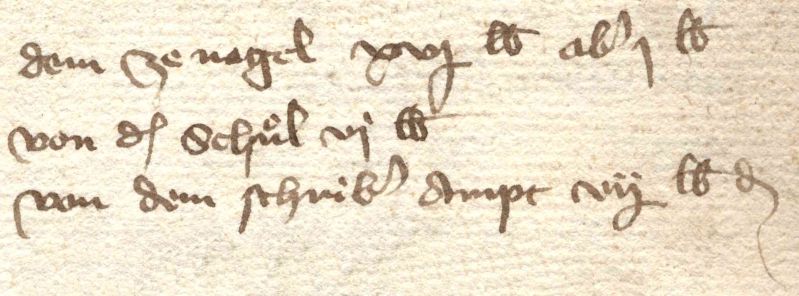 dem ze nagel xvj lb ab' j lb
von d' Schuͦl vj lb
von dem schrib' ampt vij lb d